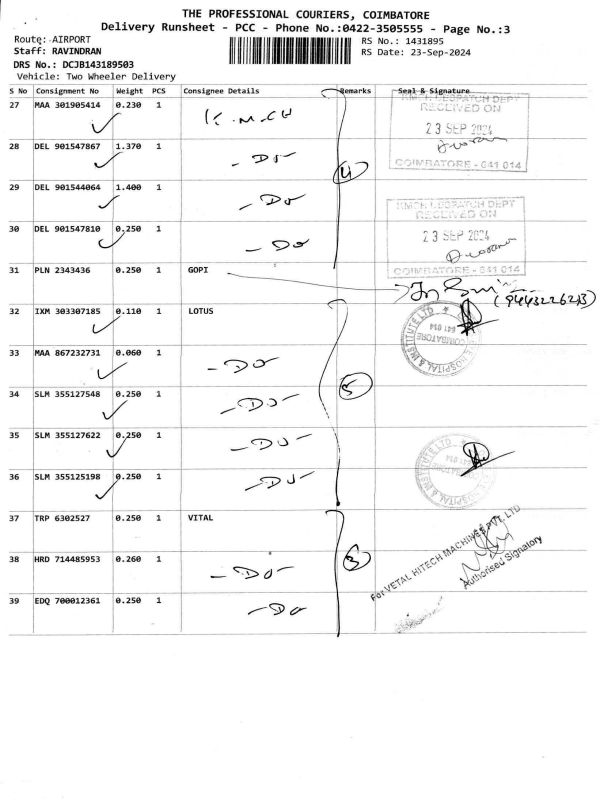 THE PROFESSIONAL COURIERS, COIMBATORE
Delivery Runsheet - PCC - Phone No.:0422-3505555 - Page No.:3
Route: AIRPORT
RS No.: 1431895
Staff: RAVINDRAN
RS Date: 23-Sep-2024
DRS No.: DCJB143189503
Vehicle: Two Wheeler Delivery
S No Consignment No Weight PCS Consignee Details Remarks Seal & Signature
27 MAA 301905414 0.230 1 K.M.CH
KMCH DESPATCH DEPT
RECEIVED ON
23 SEP 2024
COIMBATORE - 641 014
28 DEL 901547867 1.370 1 - Do -
4
29 DEL 901544064 1.400 1 - Do
KMCH DESPATCH DEPT
RECEIVED ON
23 SEP 2024
COIMBATORE - 641 014
30 DEL 901547810 0.250 1 - Do
31 PLN 2343436 0.250 1 GOPI
(9443226213)
32 IXM 303307185 0.110 1 LOTUS
HOSPITAL & INSTITUTE LTD
COIMBATORE
641 014
33 MAA 867232731 0.060 1 - Do
5
34 SLM 355127548 0.250 1 - Do -
35 SLM 355127622 0.250 1 - Do -
HOSPITAL & INSTITUTE LTD
641 014
36 SLM 355125198 0.250 1 - Do -
37 TRP 6302527 0.250 1 VITAL
For VETAL HITECH MACHINES PVT. LTD
Authorised Signatory
38 HRD 714485953 0.260 1 - Do -
3
39 EDQ 700012361 0.250 1 - Do